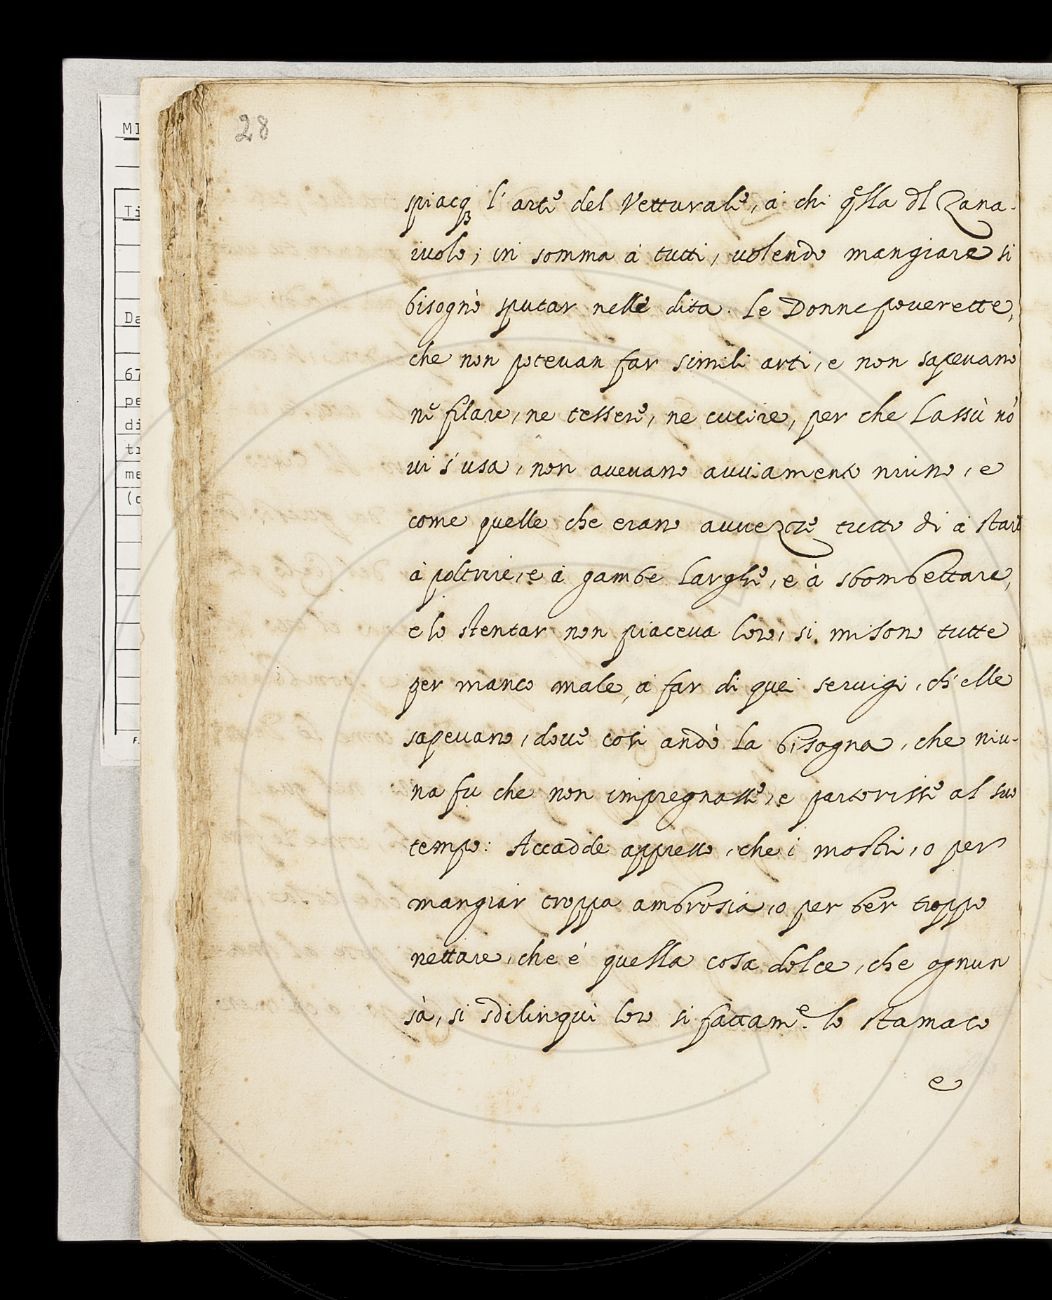 28
spiacq3 l'arte del Vetturale, à chi q.lla dl Zana-
iuolo; in somma à tutti, volendo mangiare si
bisognò sputar nelle dita. le Donne poverette,
che non potevan far simili arti, e non sapevano
nè filare, ne tessere, ne cucire, per che lassù nõ
vi s'usa, non avevano avviamento niuno, e
come quelle che erano avvezze tutto dì à stare
à poltrire, e à gambe larghe, e à sbombettare,
e lo stentar non piaceva loro, si misono tutte
per manco male, à far di quei servigi, ch'elle
sapevano, dove così andò la bisogna, che niu-
na fu che non impregnasse, e partorisse al suo
tempo: Accadde appresso, che i mostri, o per
mangiar troppa ambrosia, o per ber troppo
nettare, che è quella cosa dolce, che ognun
sà, si sdilinquì loro si fattam.e lo stamaco
e
MI
Ti
Da
67
pe
di
ti
me
(c
F.